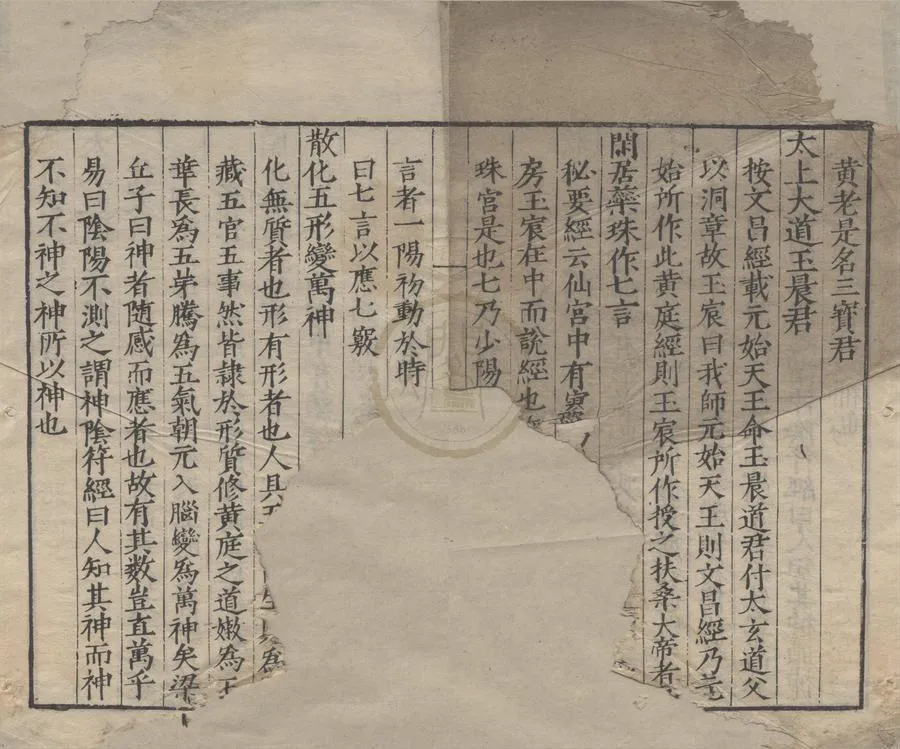 黃老是名三寳君
太上大道玉晨君
按文昌經載元始天王命玉晨道君付太玄道父
以洞章故玉宸曰我師元始天王則文昌經乃元
始所作此黃庭經則玉宸所作授之扶桑大帝者
閑居蘂珠作七言
秘要經云仙宫中有寥
房玉宸在中而說經也
珠宫是也七乃少陽
言者一陽初動於時
曰七言以應七竅
散化五形變萬神
化無質者也形有形者也人具
藏五官五事然皆隷於形質修黃庭之道嫩為
華長為五茅騰為五氣朝元入腦變為萬神矣梁
丘子曰神者隨感而應者也故有其數豈直萬乎
易曰陰陽不測之謂神陰符經曰人知其神而神
不知不神之神所以神也